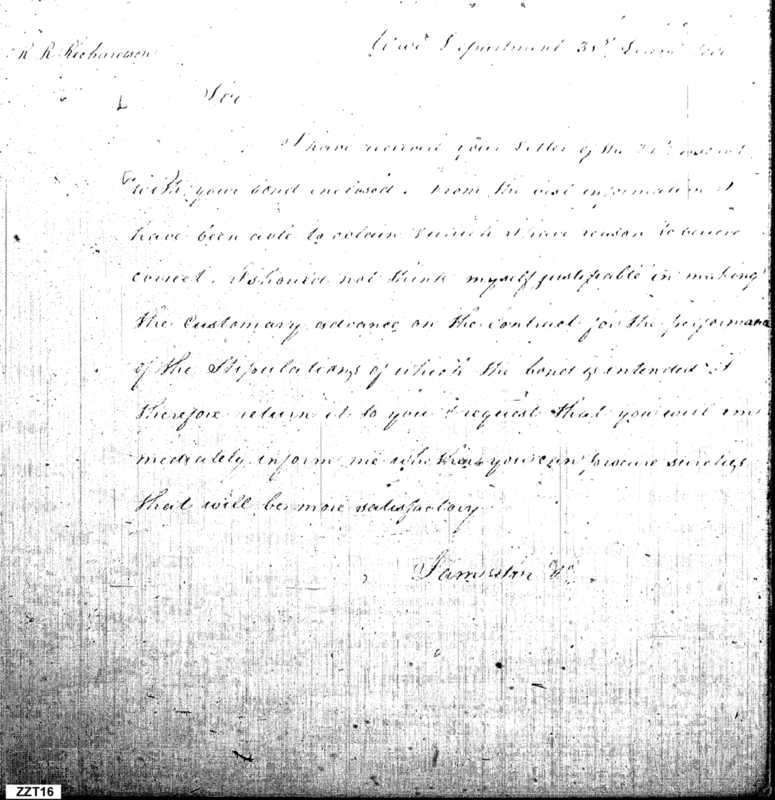 R R Richardson
War Department 31st
Sir
I have received your letter of the instant
with your bond inclosed. From the best information I
have been able to obtain & which I have reason to believe
correct. I should not think myself justifiable in making
the Customary advance on the Contract for the performance
of the Stipulations of which the bond is intended. I
therefore return it to you & request that you will im
mediately inform me whether you can procure sureties
that will be more satisfactory.
I am Sir &c
ZZT16